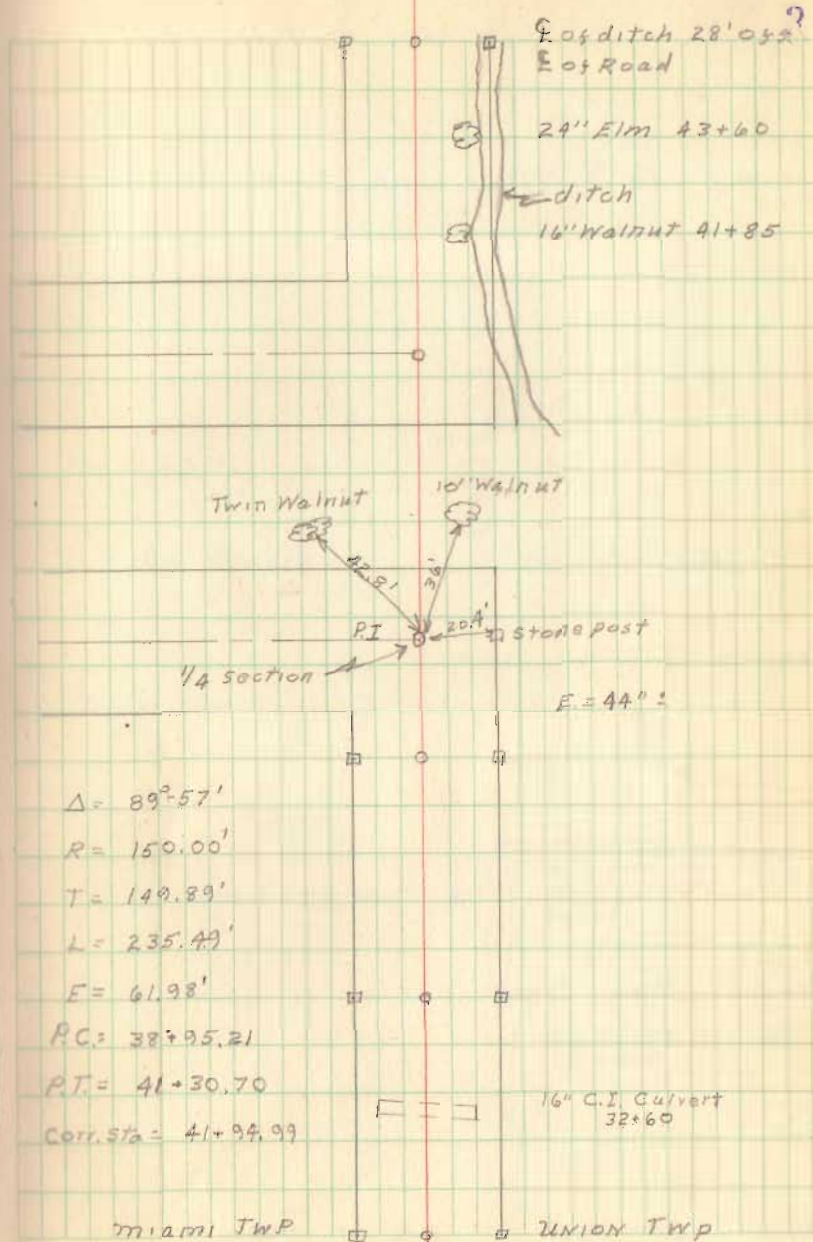 ?
℄ of ditch 28' off
℄ of Road
24" Elm 43+60
ditch
16" Walnut 41+85
Twin Walnut
10" Walnut
42.8'
36'
P.I
20.4'
stone post
1/4 section
E. = 44" ±
Δ = 89°-57'
R = 150.00'
T = 149.89'
L = 235.49'
E = 61.98'
P.C. = 38+95.21
P.T. = 41+30.70
Corr. Sta = 41+94.99
16" C.I. Culvert
32+60
Miami TWP
UNION TWP